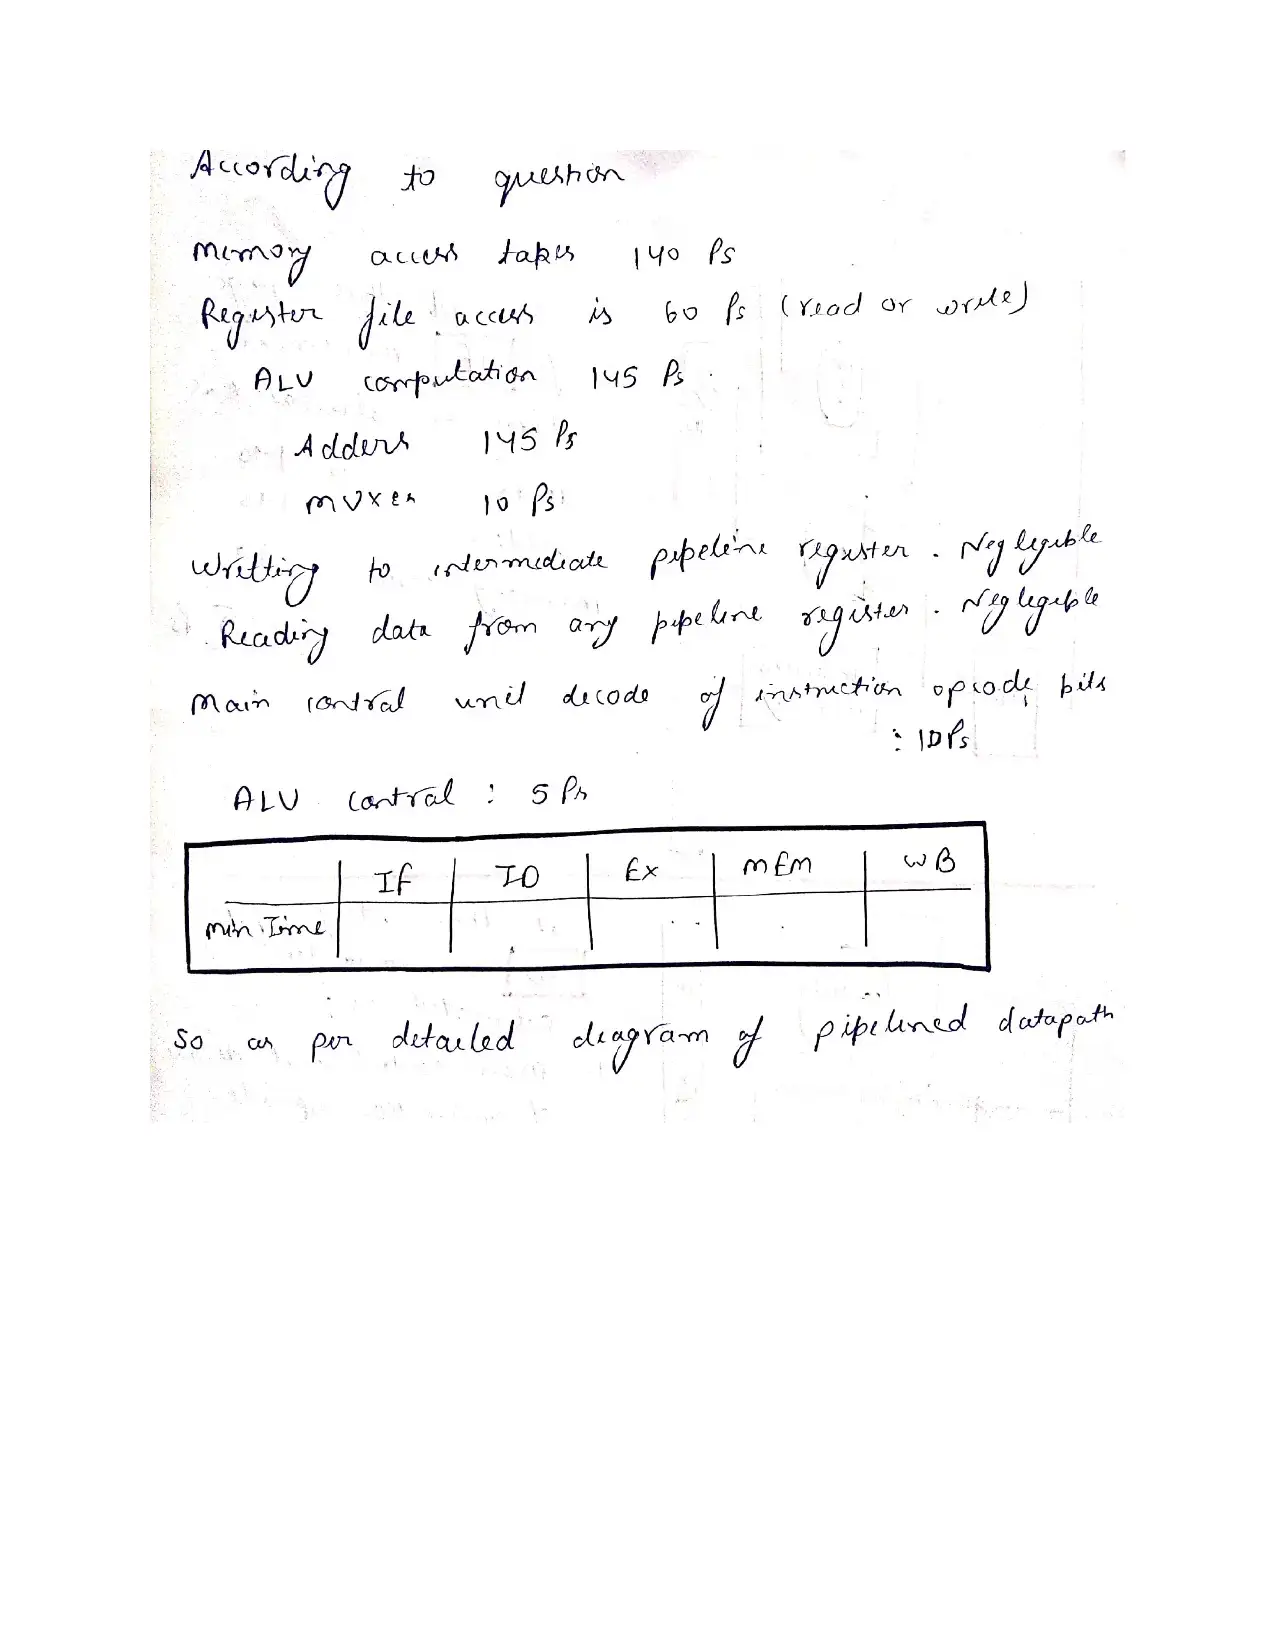 According to question
Memory access takes 140 Ps
Register file access is 60 Ps (read or write)
ALU computation 145 Ps.
Adders 145 Ps
MUXes 10 Ps
Writting to intermediate pipeline register. Neglegible
Reading data from any pipeline register. Neglegible
Main control unit decode of instruction opcode bits
: 10 Ps
ALU control : 5 Ps
IF ID Ex MEM WB
Min Time
So as per detailed diagram of pipelined datapath